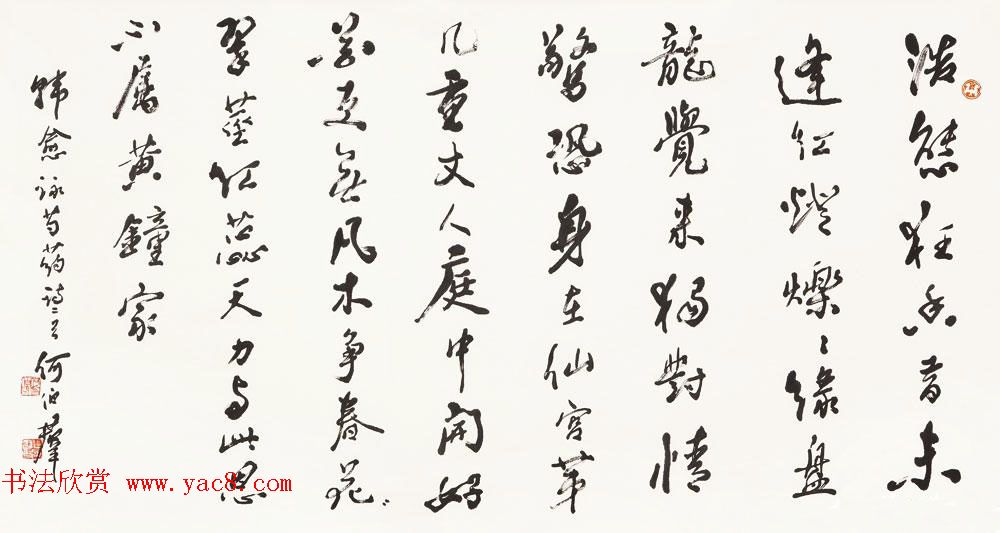 浩態狂香昔未
逢红燈爍〻緑盤
龍覺来獨對情
驚恐身在仙宫第
几重丈人庭中開好
花更無凡木争春花
翠莖红蕊天力与此恩
不屬黄鐘家
韩愈詠芍药詩二首 何伯群
书法欣赏 www.yac8.com